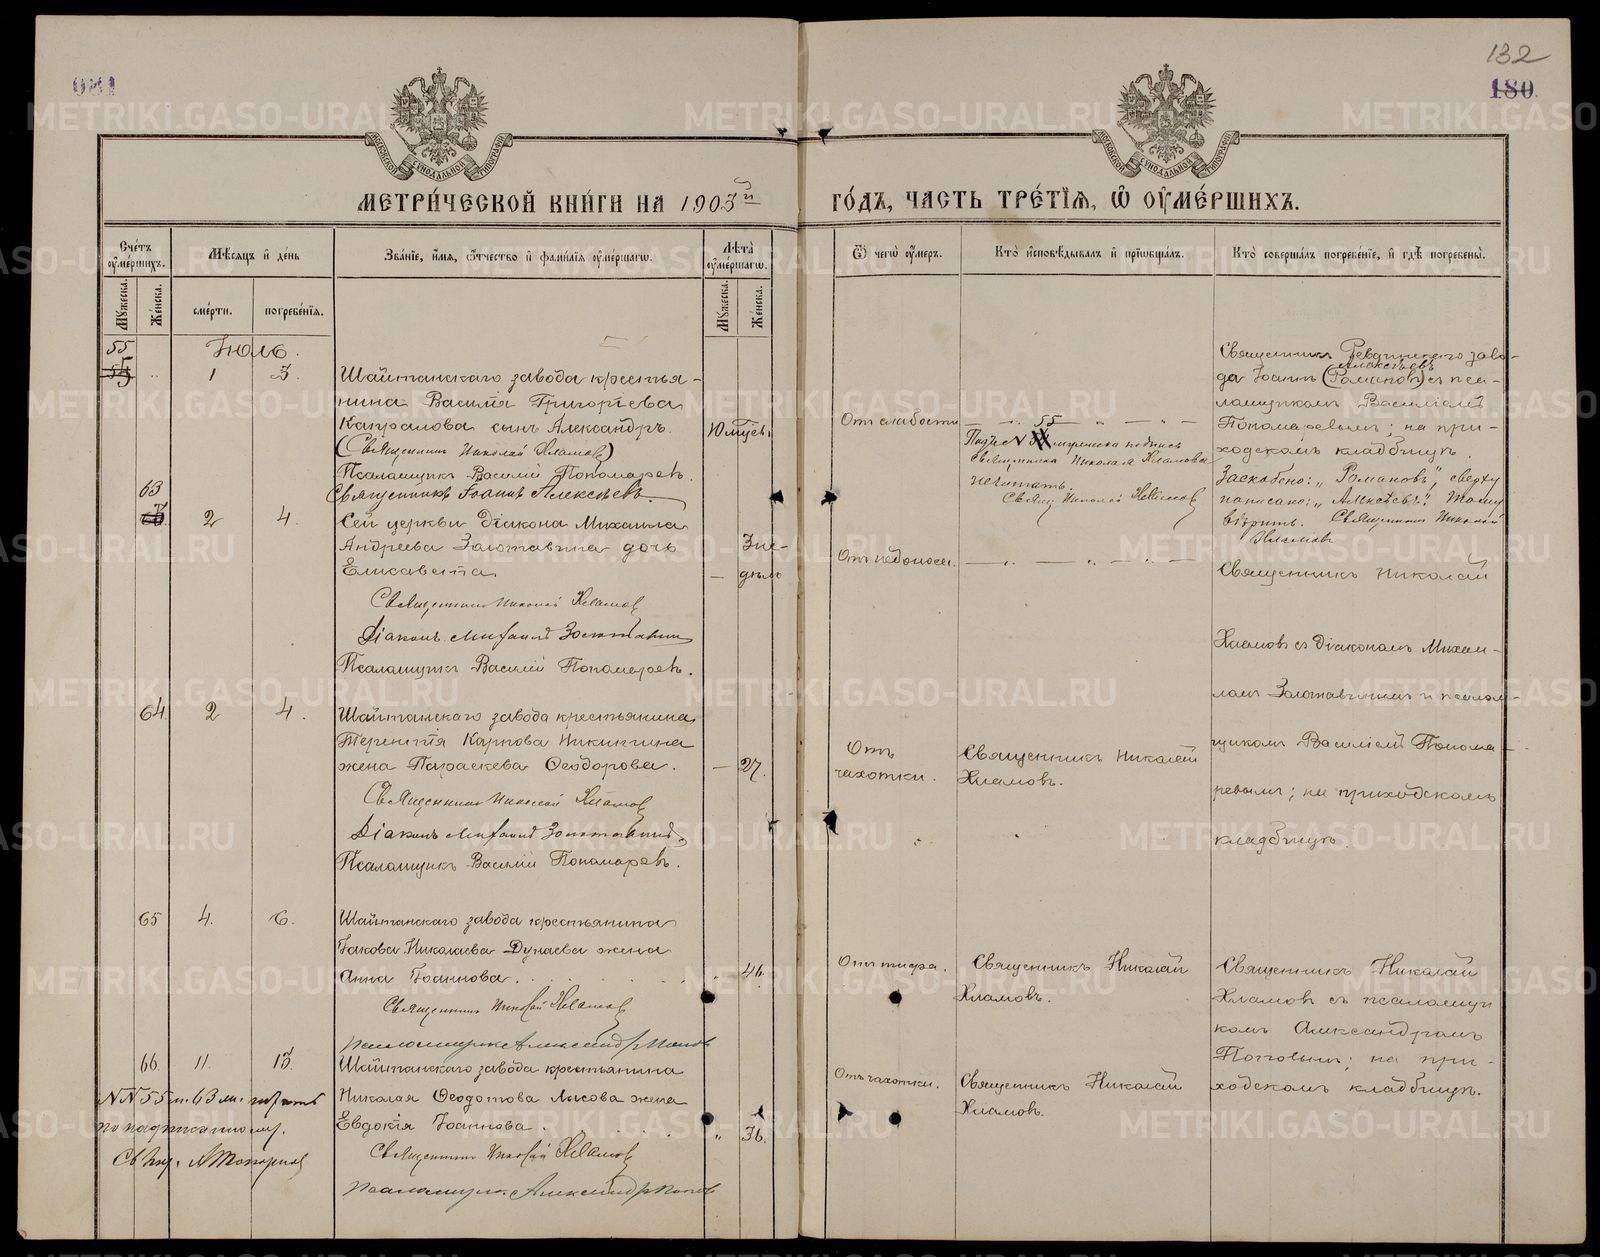 132
180
МЕТРИ́ЧЕСКОЙ КНИ́ГИ НА 1903й
ГО́ДЪ, ЧАСТЬ ТРЕ́ТІѦ, Ѿ ОУМЕ́РШИХЪ.
Сче́тъ оуме́ршихъ.
Мꙋжеска.
Же́нска.
Мѣ́сяцъ и҆ де́нь
сме́рти.
погребе́нїѧ.
Зва́нїе, и҆́мѧ, ѻ҆́тчество и҆ фами́лїѧ оуме́ршагѡ.
Лѣ́та оуме́ршагѡ.
Мꙋжеска.
Же́нска.
Ѿ чегѡ̀ оу҆́меръ.
Кто̀ и҆сповѣ́дывалъ и҆ прїѡбща́лъ.
Кто̀ соверша́лъ погребе́нїе, и҆ гдѣ̀ погребены̀.
Іюль.
55
1
3
Шайтанскаго завода крестья-
нина Василія Григоріева
Капралова сынъ Александръ
(Священникъ Николай Хламовъ)
Псаломщикъ Василій Пономаревъ.
Священникъ Іоаннъ Алексѣевъ.
Отъ слабости
55
Подъ N мужеска подпись
священника Николая Хламова
не читать.
Свящ. Николай Хламовъ
Священникъ Ревдинскаго заво-
Алексѣевъ
да Іоаннъ (Романовъ) съ пса-
ломщикомъ Василіемъ
Пономаревымъ; на при-
ходскомъ кладбищѣ.
Заскоблено: „Романовъ", сверху
написано: „Алексѣевъ". Тому
вѣрить. Священникъ Николай
Хламовъ
63
2
4.
Сей церкви діакона Михаила
Андреева Золотавина дочь
Елисавета
Священникъ Николай Хламовъ
Діаконъ Михаилъ Золотавинъ
Псаломщикъ Василій Пономаревъ.
3 не-
дѣль
Отъ недоноск.
Священникъ Николай
Хламовъ съ діакономъ Михаи-
ломъ Золотавинымъ и псалом-
щикомъ Василіемъ Понома-
ревымъ; на приходскомъ
кладбищѣ.
64
2
4.
Шайтанскаго завода крестьянина
Терентія Карпова Никитина
жена Параскева Ѳеодорова.
Священникъ Николай Хламовъ
Діаконъ Михаилъ Золотавинъ
Псаломщикъ Василій Пономаревъ.
27.
Отъ
чахотки.
Священникъ Николай
Хламовъ.
65
4.
6.
Шайтанскаго завода крестьянина
Іакова Николаева Дунаева жена
Анна Іоаннова.
Священникъ Николай Хламовъ
Псаломщикъ Александръ Поповъ
Отъ тифа.
Священникъ Николай
Хламовъ.
Священникъ Николай
Хламовъ съ псаломщи
комъ Александромъ
Поповымъ; на при-
ходскомъ кладбищѣ.
66
11.
13.
Шайтанскаго завода крестьянина
Николая Ѳеодотова Лысова жена
Евдокія Іоаннова.
Священникъ Николай Хламовъ
Псаломщикъ Александръ Поповъ
36.
Отъ чахотки.
Священникъ Николай
Хламовъ.
NN 55 и 63
METRIKI.GASO-URAL.RU